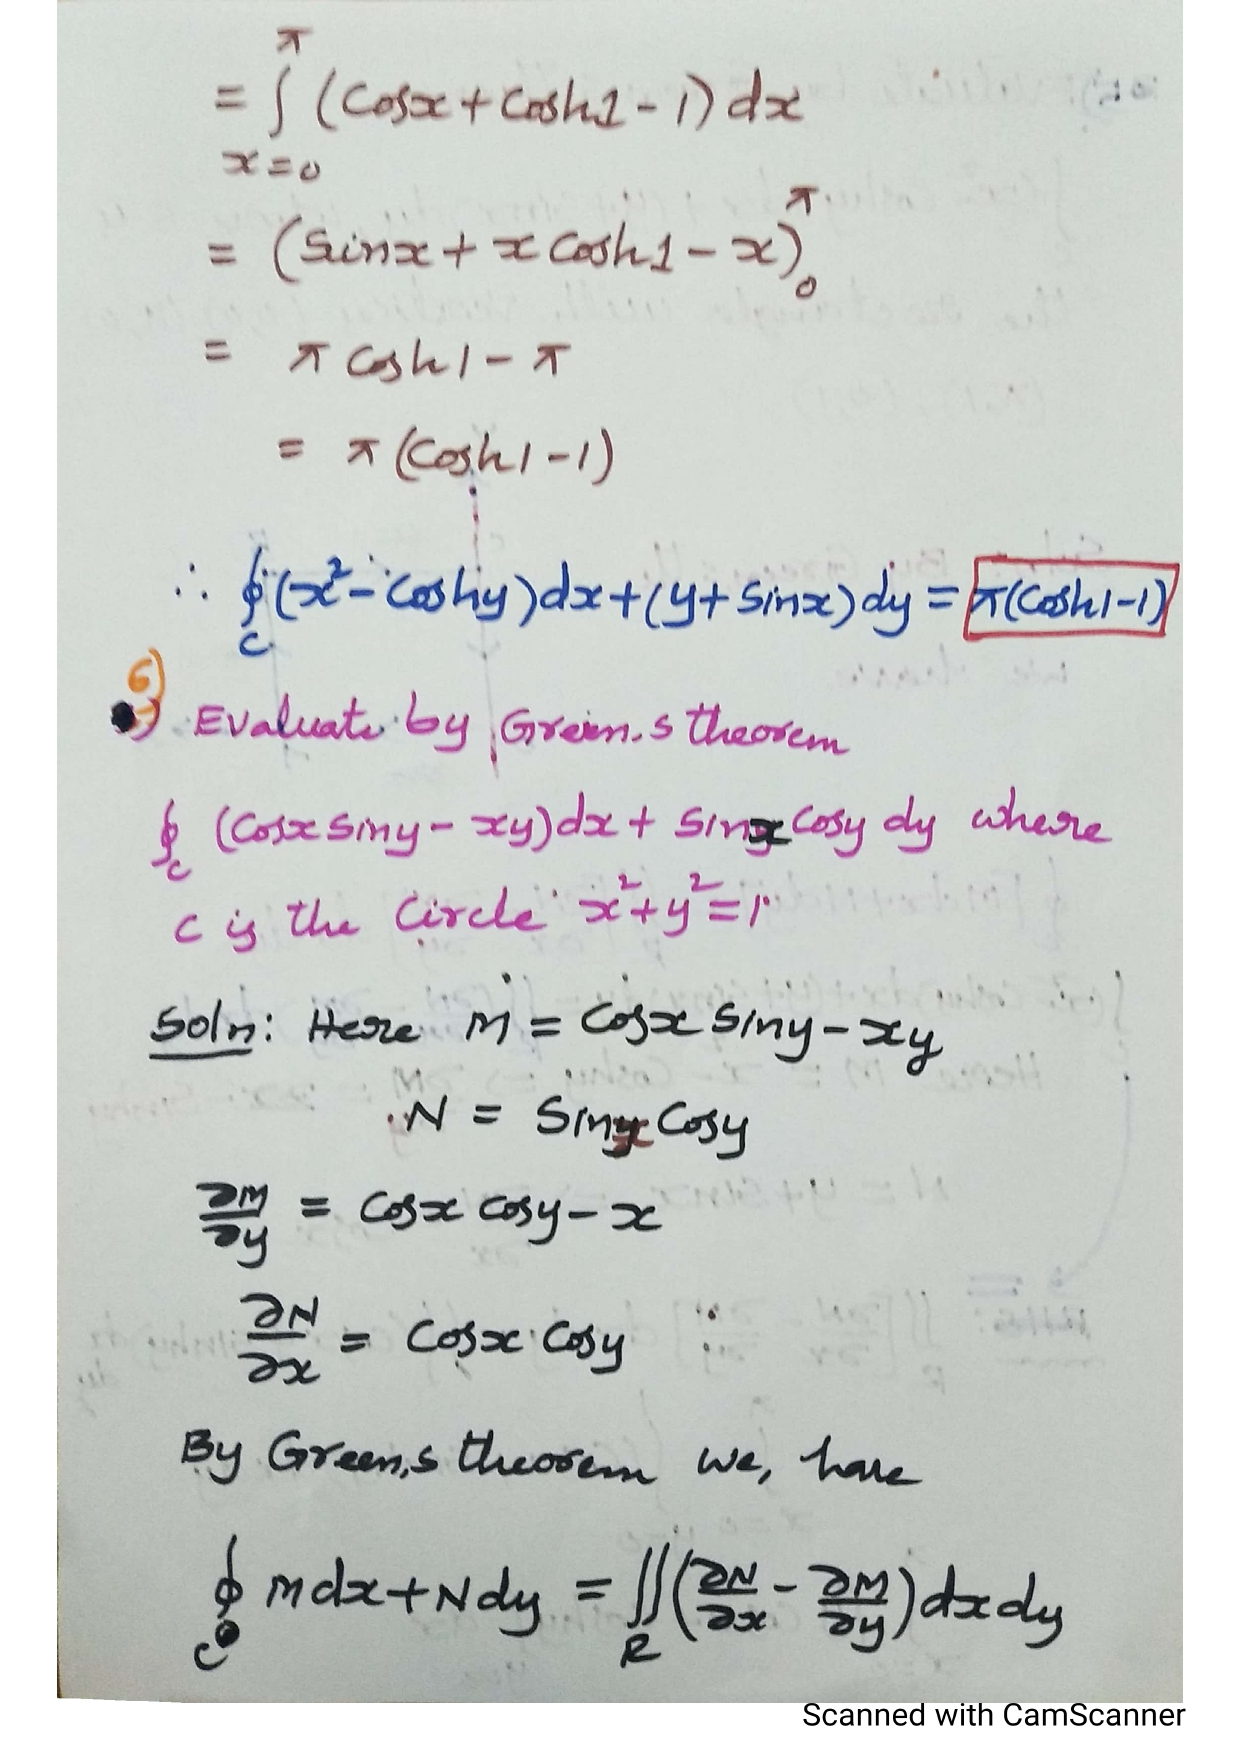 π
= ∫ (Cosx + Cosh1 - 1) dx
x=0
= (Sinx + x Cosh1 - x)₀^π
= π Cosh1 - π
= π (Cosh1 - 1)
∴ ∮_C (x² - Coshy) dx + (y + Sinx) dy = π(Cosh1-1)
6) Evaluate by Green,s theorem
∮_C (Cosx Siny - xy) dx + Sinx Cosy dy where
C is the Circle x² + y² = 1
Soln: Here M = Cosx Siny - xy
N = Sinx Cosy
∂M/∂y = Cosx Cosy - x
∂N/∂x = Cosx Cosy
By Green,s theorem we, have
∮_C M dx + N dy = ∬_R (∂N/∂x - ∂M/∂y) dx dy
Scanned with CamScanner